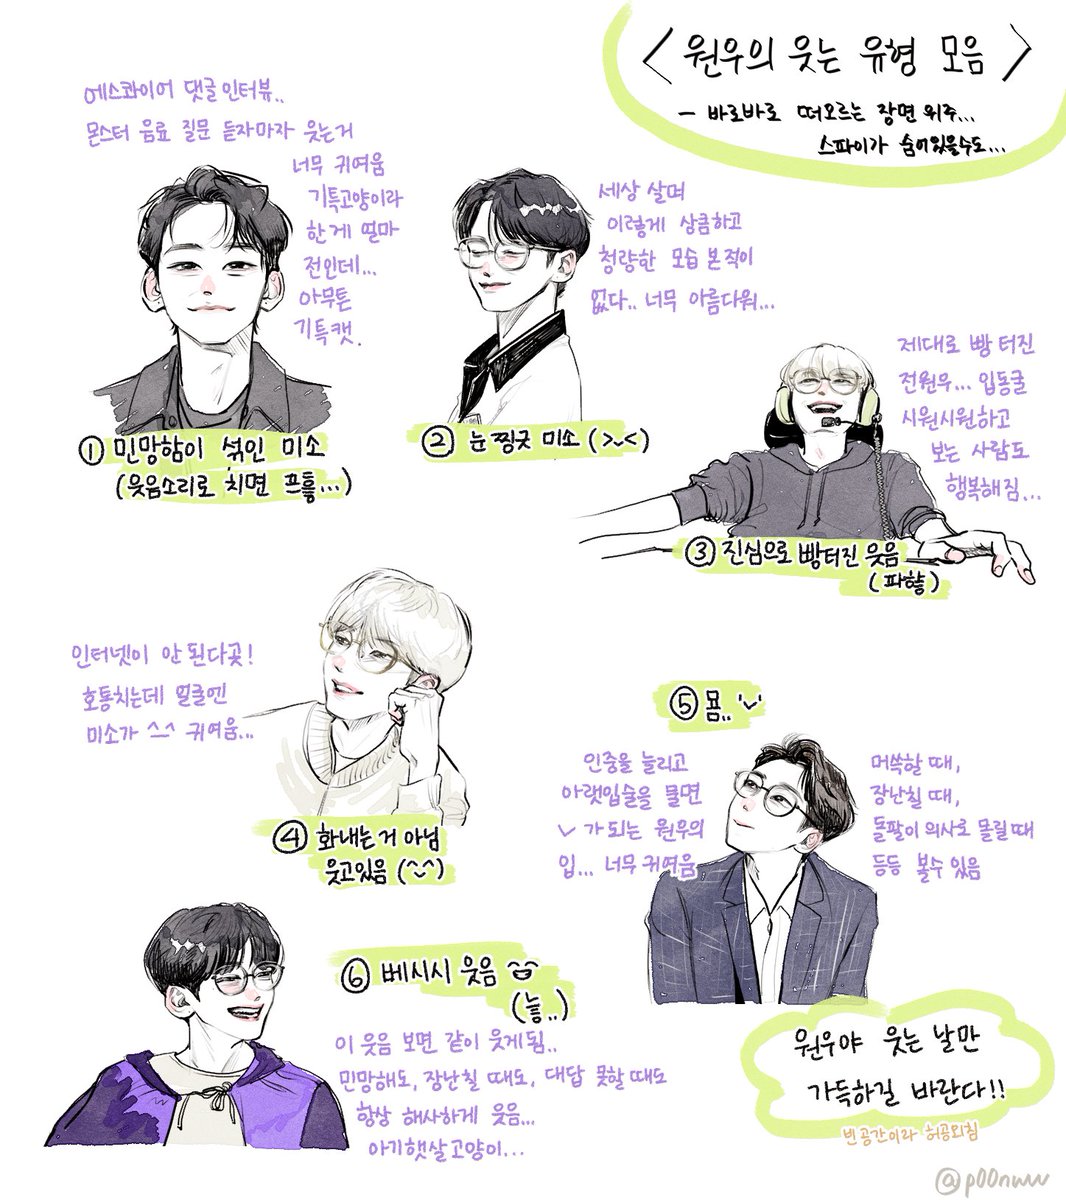 <원우의 웃는 유형 모음>
- 바로바로 떠오르는 장면 위주...
스파이가 숨어있을수도...
에스콰이어 댓글인터뷰..
몬스터 음료 질문 듣자마자 웃는거
너무 귀여움
기특고양이라
한게 얼마
전인데...
아무튼
기특캣.
① 민망함이 섞인 미소
(웃음소리로 치면 프흫...)
세상 살며
이렇게 상큼하고
청량한 모습 본적이
없다.. 너무 아름다워...
② 눈찡긋 미소 (>⌄<)
제대로 빵 터진
전원우... 입동굴
시원시원하고
보는 사람도
행복해짐...
③ 진심으로 빵터진 웃음
(파핳)
인터넷이 안 된다곳!
호통치는데 얼굴엔
미소가 ^-^ 귀여움...
④ 화내는 거 아님
웃고있음 (^⌄^)
⑤ 묨.. '⌄'
인중을 늘리고
아랫입술을 물면
⌄ 가 되는 원우의
입... 너무 귀여움
머쓱할 때,
장난칠 때,
돌팔이 의사로 몰릴때
등등 볼수 있음
⑥ 베시시 웃음
(늫..)
이 웃음 보면 같이 웃게됨..
민망해도, 장난칠 때도, 대답 못할때도
항상 해사하게 웃음...
아기햇살고양이...
원우야 웃는 날만
가득하길 바란다!!
빈공간이라 허공외침
@p00nww